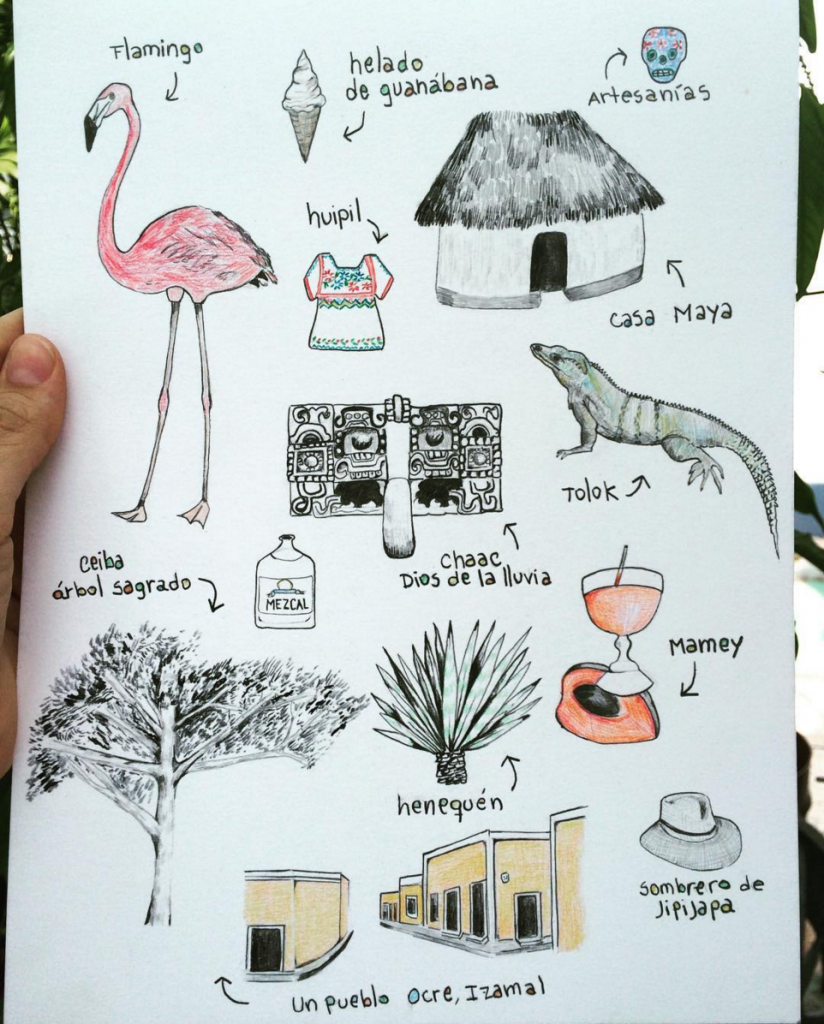 Flamingo
helado
de guanábana
Artesanías
huipil
casa Maya
Tolok
chaac
Dios de la lluvia
ceiba
árbol sagrado
MEZCAL
Mamey
henequén
sombrero de
Jipijapa
un pueblo ocre, Izamal